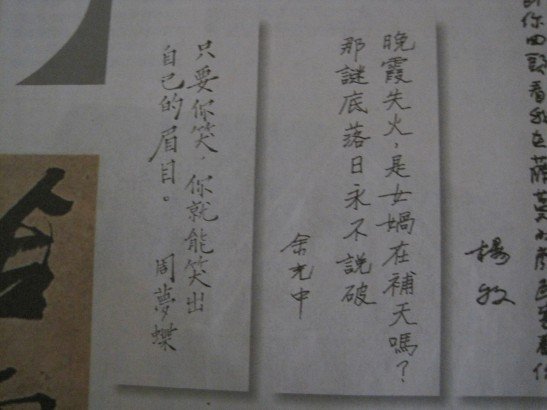 你回頭看我在
楊牧
晚霞失火，是女媧在補天嗎？
那謎底落日永不說破
余光中
只要你笑，你就能笑出
自己的眉目。
周夢蝶